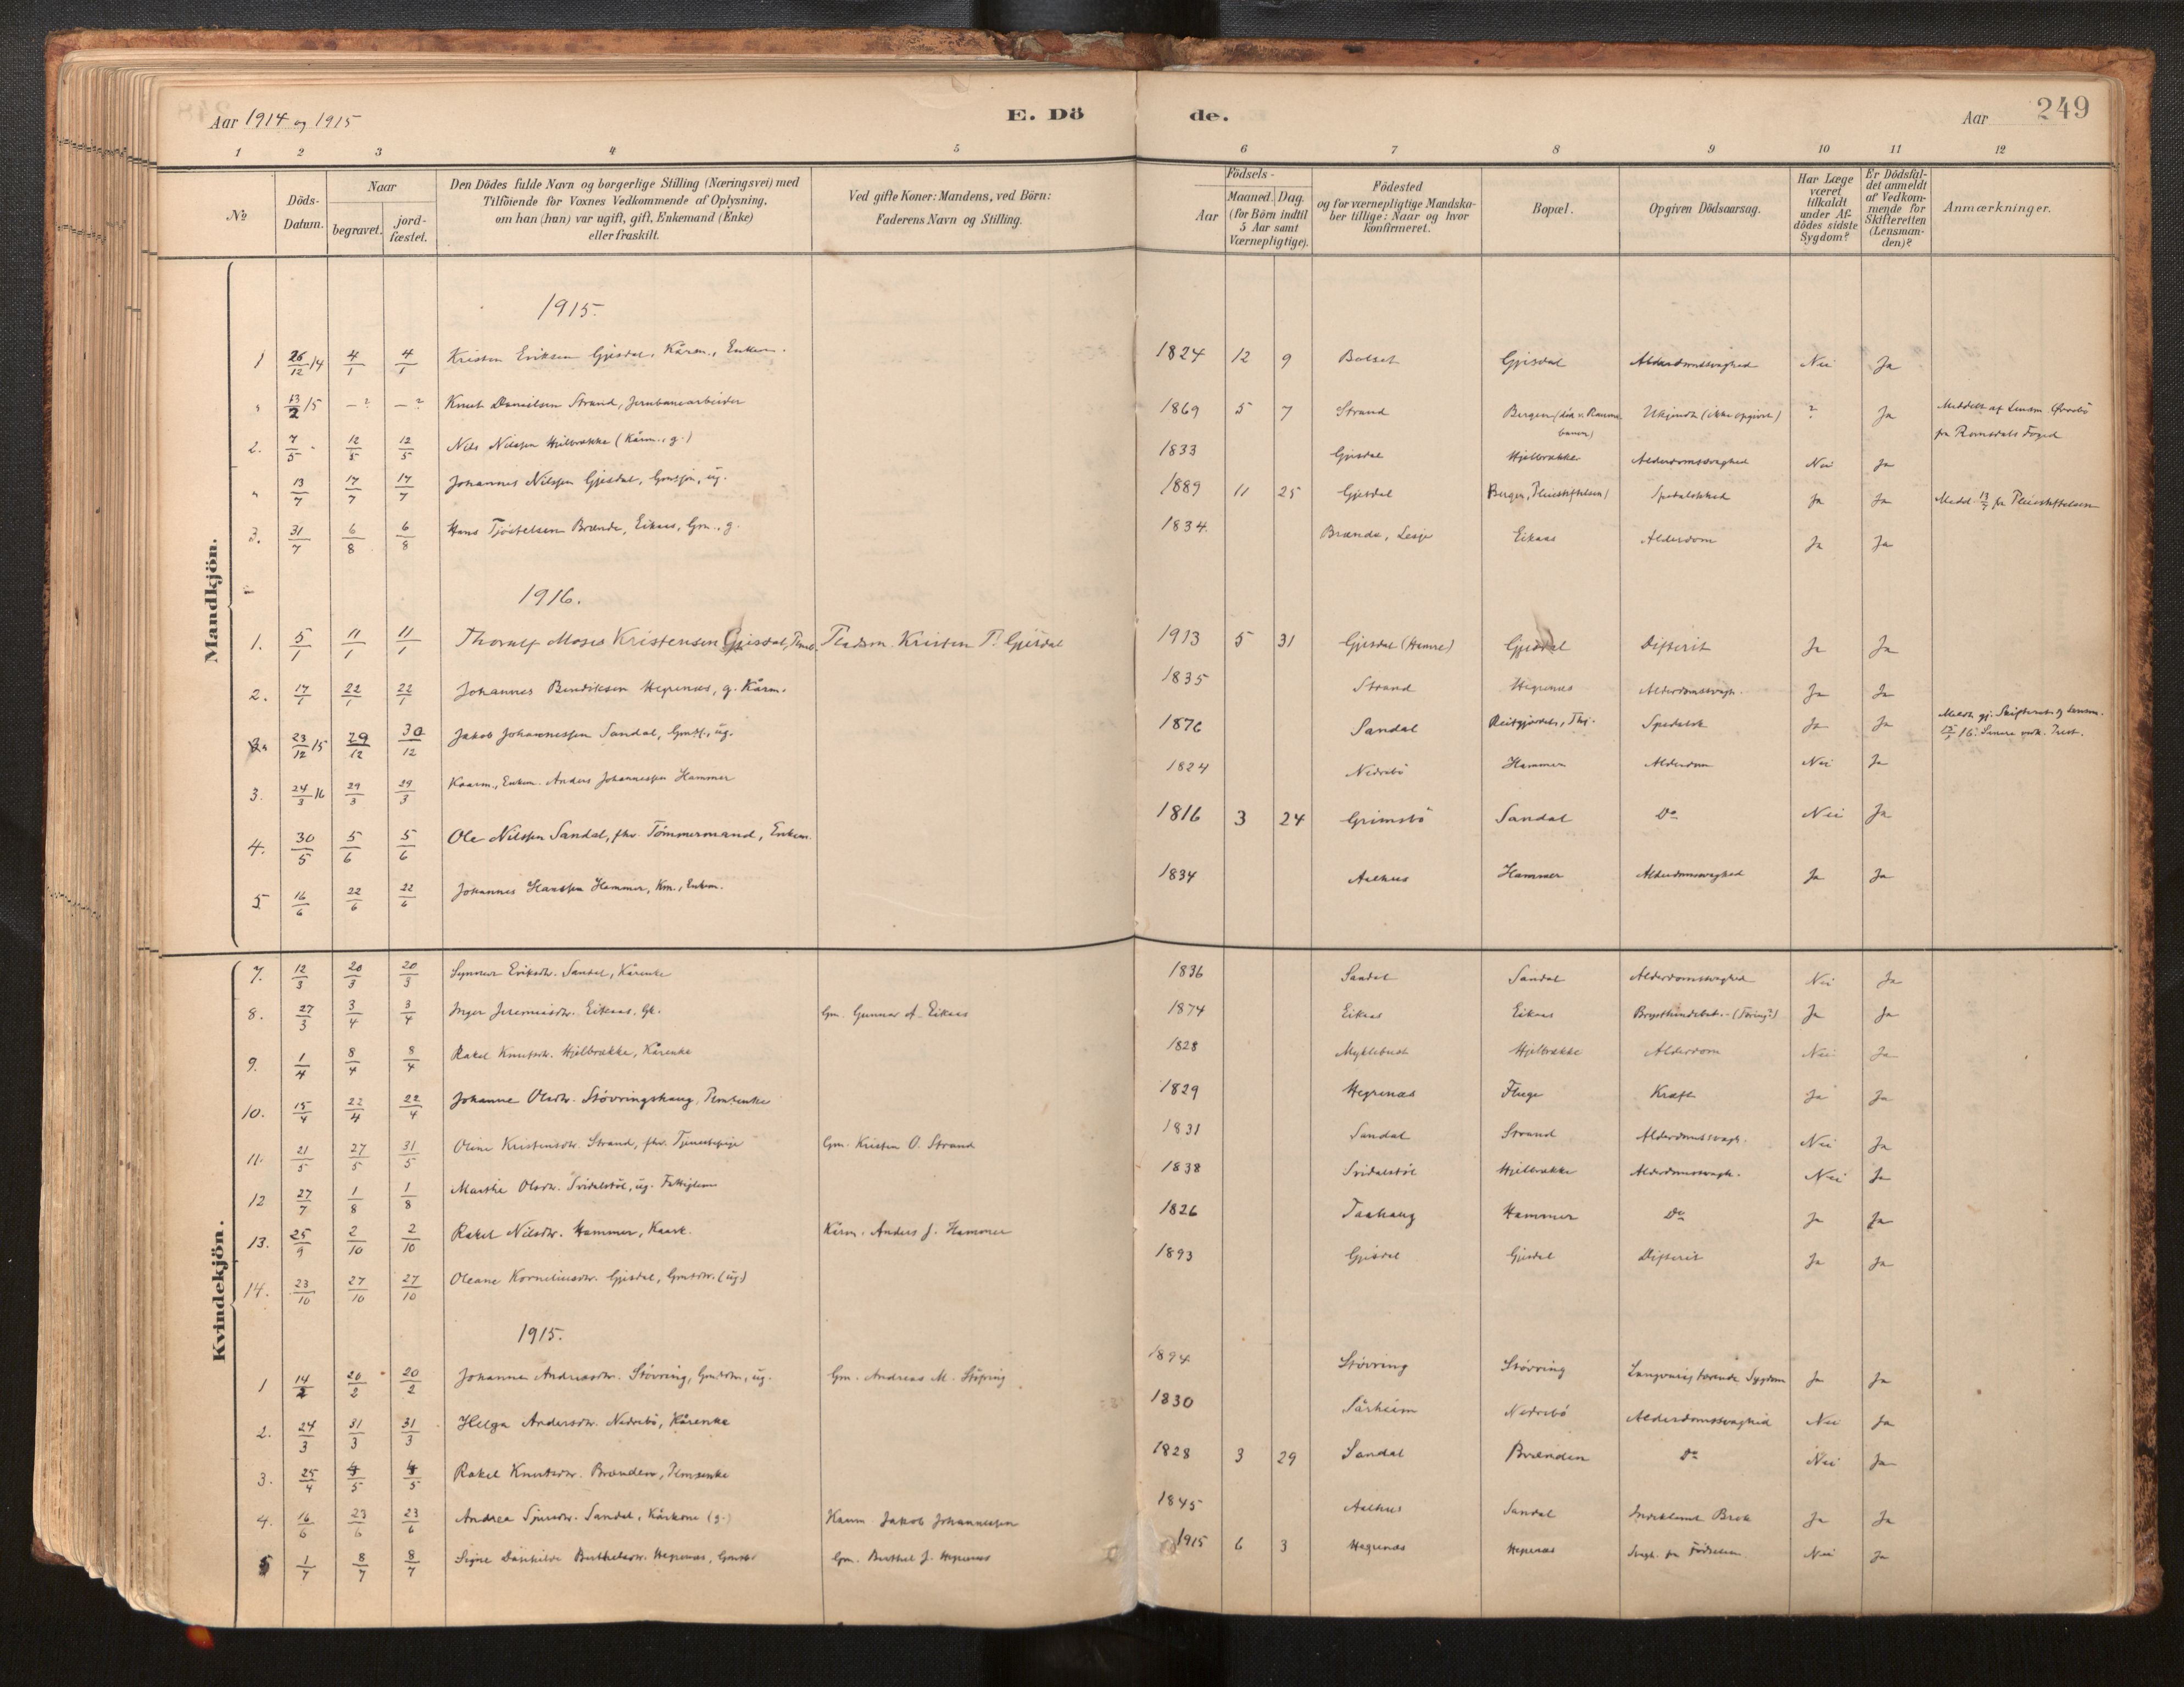 Aar 1914 og 1915
E. Döde.
Aar
249
1 2 3 4 5 6 7 8 9 10 11 12
No
Döds-Datum.
Naar
begravet.
jord-fæstet.
Den Dödes fulde Navn og borgerlige Stilling (Næringsvei) med
Tilföiende for Voxnes Vedkommende af Oplysning,
om han (hun) var ugift, gift, Enkemand (Enke)
eller fraskilt.
Ved gifte Koner: Mandens, ved Börn:
Faderens Navn og Stilling.
Födsels-
Aar
Maaned.
Dag.
(for Börn indtil
5 Aar samt
Værnepligtige).
Födested
og for værnepligtige Mandska-
ber tillige: Naar og hvor
konfirmeret.
Bopæl.
Opgiven Dödsaarsag.
Har Læge
været
tilkaldt
under Af-
dödes sidste
Sygdom?
Er Dödsfal-
det anmeldt
af Vedkom-
mende for
Skifteretten
(Lensman-
den)?
Anmærkninger.
Mandkjön.
1915.
1 26/12 14 4/1 4/1 Kristen Eriksen Gjesdal, Kårm., Enkem. 1824 12 9 Bolset Gjesdal Alderdomssvaghed Nei Ja
" 13/2 15 — ? — ? Knut Danielsen Strand, Jernbanearbeider 1869 5 7 Strand Bergen (død v. Rauma banen) Ukjendt (ikke opgivet) ? Ja Meddelt af Lensm. fra Romsdals Foged
2. 7/5 12/5 12/5 Nils Nilssen Hjelbrække (Kårm., g.) 1833 Gjesdal Hjelbrække Alderdomssvaghed Nei Ja
" 13/7 17/7 17/7 Johannes Nilssen Gjesdal, Gmssøn, ug. 1889 11 25 Gjesdal Bergen, Pleiestiftelsen Spedalskhed Ja Ja Medd. 13/7 fra Pleiestiftelsen
3. 31/7 6/8 6/8 Hans Tjöstelsen Brænde, Eikaas, Gm., g. 1834. Brænde, Eikaas Alderdom Ja Ja
1916.
1. 5/1 11/1 11/1 Thoralf Moses Kristensen Gjesdal, Pladsm. Kristen P. Gjesdal 1913 5 31 Gjesdal (Hamre) Gjesdal Difterit Ja Ja
2. 17/1 22/1 22/1 Johannes Bendiksen Hegrenæs, g. Kårm. 1835 Strand Hegrenes Alderdomssvagh. Ja Ja
23/12 15 29/12 30/12 Jakob Johannessen Sandal, Gmss., ug. 1876 Sandal Reitgjerdet, Thj. Spedalsk Ja Ja
3. 24/3 16 29/3 29/3 Kaarm., Enkem. Anders Johannessen Hammer 1824 Nedrebö Hammer Alderdom Nei Ja
4. 30/5 5/6 5/6 Ole Nilssen Sandal, fhv. Tömmermand, Enkem. 1816 3 24 Grimsbö Sandal Do Nei Ja
5. 16/6 22/6 22/6 Johannes Hanssen Hammer, Km., Enkem. 1834 Aalhus Hammer Alderdomssvaghed Ja Ja
Kvindekjön.
7. 12/3 20/3 20/3 Synneva Eriksdtr. Sandal, Kårenke 1836 Sandal Sandal Alderdomssvaghed Nei Ja
8. 27/3 3/4 3/4 Inger Jeremiasdtr. Eikaas, Gk. Gm. Gunnar A. Eikaas 1874 Eikaas Eikaas (Tæring?) Ja Ja
9. 1/4 8/4 8/4 Rakel Knutsdtr. Hjelbrække, Kårenke 1828 Myklebust Hjelbrække Alderdom Nei Ja
10. 15/4 22/4 22/4 Johanne Olsdtr. Stövringshaug, Plmsenke 1829 Hegrenæs Fluge Kræft Ja Ja
11. 21/5 27/5 31/5 Oline Kristensdtr. Strand, fhv. Tjenestepige Gm. Kristen O. Strand 1831 Sandal Strand Alderdomssvagh. Nei Ja
12 27/7 1/8 1/8 Marthe Olsdtr. Svidalstöl, ug. Fattiglem 1838 Svidalstöl Hjelbrække Alderdomssvagh. Nei Ja
13. 25/9 2/10 2/10 Rakel Nilsdtr. Hammer, Kaark. Kårm. Anders J. Hammer 1826 Taahaug Hammer Do Ja Ja
14. 23/10 27/10 27/10 Oleane Korneliusdtr. Gjesdal, Gmsdtr. (ug.) 1893 Gjesdal Gjesdal Difterit Ja Ja
1915.
1 14/2 20/2 20/2 Johanne Andreasdtr. Stövring, Gmsdtr., ug. Gm. Andreas M. Stövring 1894 Stövring Stövring Langvarig tærende Sygdom Ja Ja
2. 24/3 31/3 31/3 Helga Andersdtr. Nedrebö, Kårenke 1830 Sårheim Nedrebö Alderdomssvaghed Nei Ja
3. 25/4 4/5 4/5 Rakel Knutsdtr. Brænden, Plmsenke 1828 3 29 Sandal Brænden Do Nei Ja
4. 16/6 23/6 23/6 Andrea Sjursdtr. Sandal, Kårkone (g.) Kaarm. Jakob Johannessen 1845 Aalhus Sandal Indeklemt Brok Ja Ja
5 1/7 8/7 8/7 Signe Berthelsdtr. Hegrenæs, Gmsdtr. Gm. Berthel J. Hegrenæs 1915 6 3 Hegrenæs Hegrenæs Svagh. fra Födselen Nei Ja